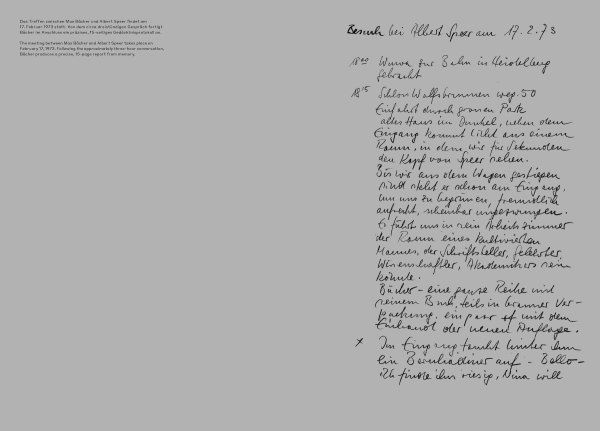 Das Treffen zwischen Max Bächer und Albert Speer findet am
17. Februar 1973 statt. Von dem circa dreistündigen Gespräch fertigt
Bächer im Anschluss ein präzises, 15-seitiges Gedächtnisprotokoll an.
The meeting between Max Bächer and Albert Speer takes place on
February 17, 1973. Following the approximately three-hour conversation,
Bächer produces a precise, 15-page report from memory.
Besuch bei Albert Speer am 17.2.73
18 00 zur Bahn in Heidelberg
gebracht
18 15 Schloss Wolfsbrunnen weg 50
Einfahrt durch grossen Park
altes Haus im Dunkel, neben dem
Eingang kommt Licht aus einem
Raum, in dem wir für Sekunden
den Kopf von Speer sehen.
Bis wir aus dem Wagen gestiegen
sind steht er schon am Eingang,
um uns zu begrüssen, freundlich
aufrecht, scheinbar ungezwungen.
Er führt uns in sein Arbeitszimmer
der Raum eines kultivierten
Mannes, der Schriftsteller, Gelehrter,
Wissenschaftler, Akademikers sein
könnte.
Bücher – eine ganze Reihe mit
seinem Buch, teils in brauner Ver-
packung, ein paar mit dem
Einband der neuen Auflage.
x Im Eingang taucht hinter ihm
ein Bernhardiner auf – Bello –
ich finde ihn riesig, Nina will